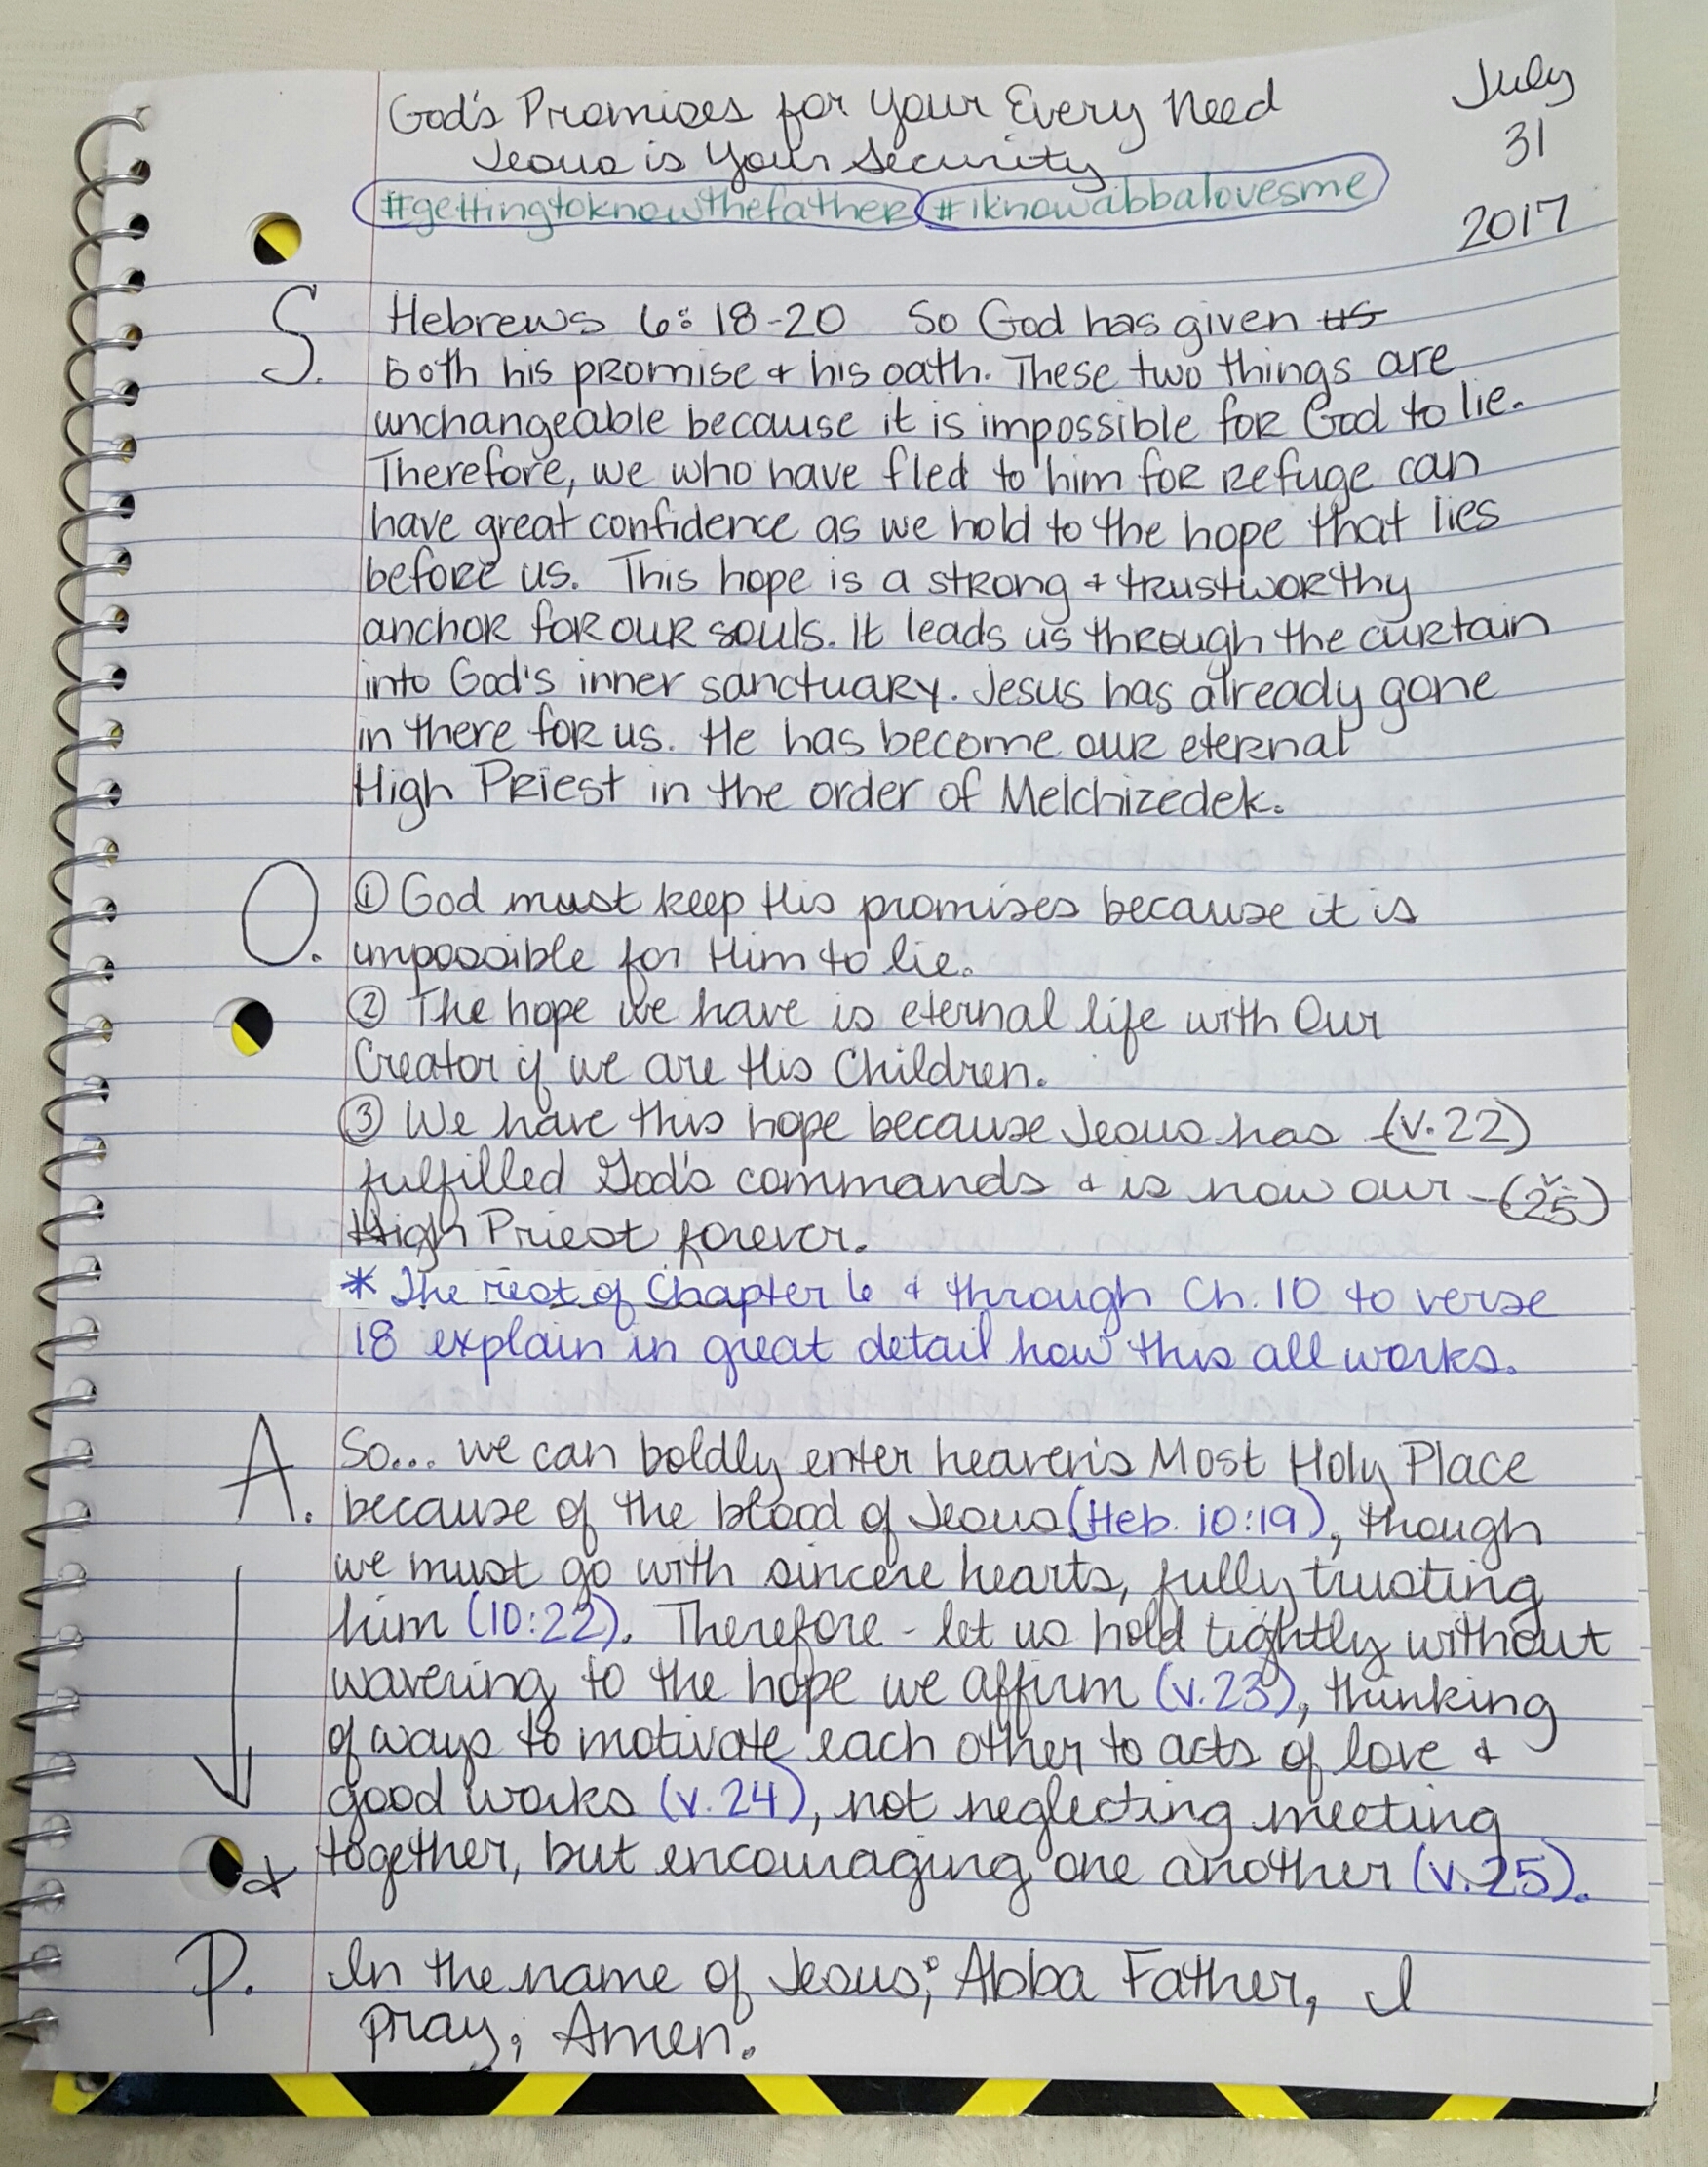 God's Promises for Your Every Need
July
Jesus is Your Security
31
#gettingtoknowthefather #iknowabbalovesme
2017
S. Hebrews 6:18-20 So God has given us
both his promise & his oath. These two things are
unchangeable because it is impossible for God to lie.
Therefore, we who have fled to him for refuge can
have great confidence as we hold to the hope that lies
before us. This hope is a strong & trustworthy
anchor for our souls. It leads us through the curtain
into God's inner sanctuary. Jesus has already gone
in there for us. He has become our eternal
High Priest in the order of Melchizedek.
O. ① God must keep His promises because it is
impossible for Him to lie.
② The hope we have is eternal life with Our
Creator if we are His Children.
③ We have this hope because Jesus has (v.22)
fulfilled God's commands & is now our - (v.25)
High Priest forever.
* The rest of Chapter 6 & through Ch. 10 to verse
18 explain in great detail how this all works.
A. So... we can boldly enter heaven's Most Holy Place
because of the blood of Jesus (Heb. 10:19), though
we must go with sincere hearts, fully trusting
him (10:22). Therefore - let us hold tightly without
wavering to the hope we affirm (v.23), thinking
of ways to motivate each other to acts of love &
good works (v.24), not neglecting meeting
& together, but encouraging one another (v.25).
P. In the name of Jesus; Abba Father, I
pray; Amen.